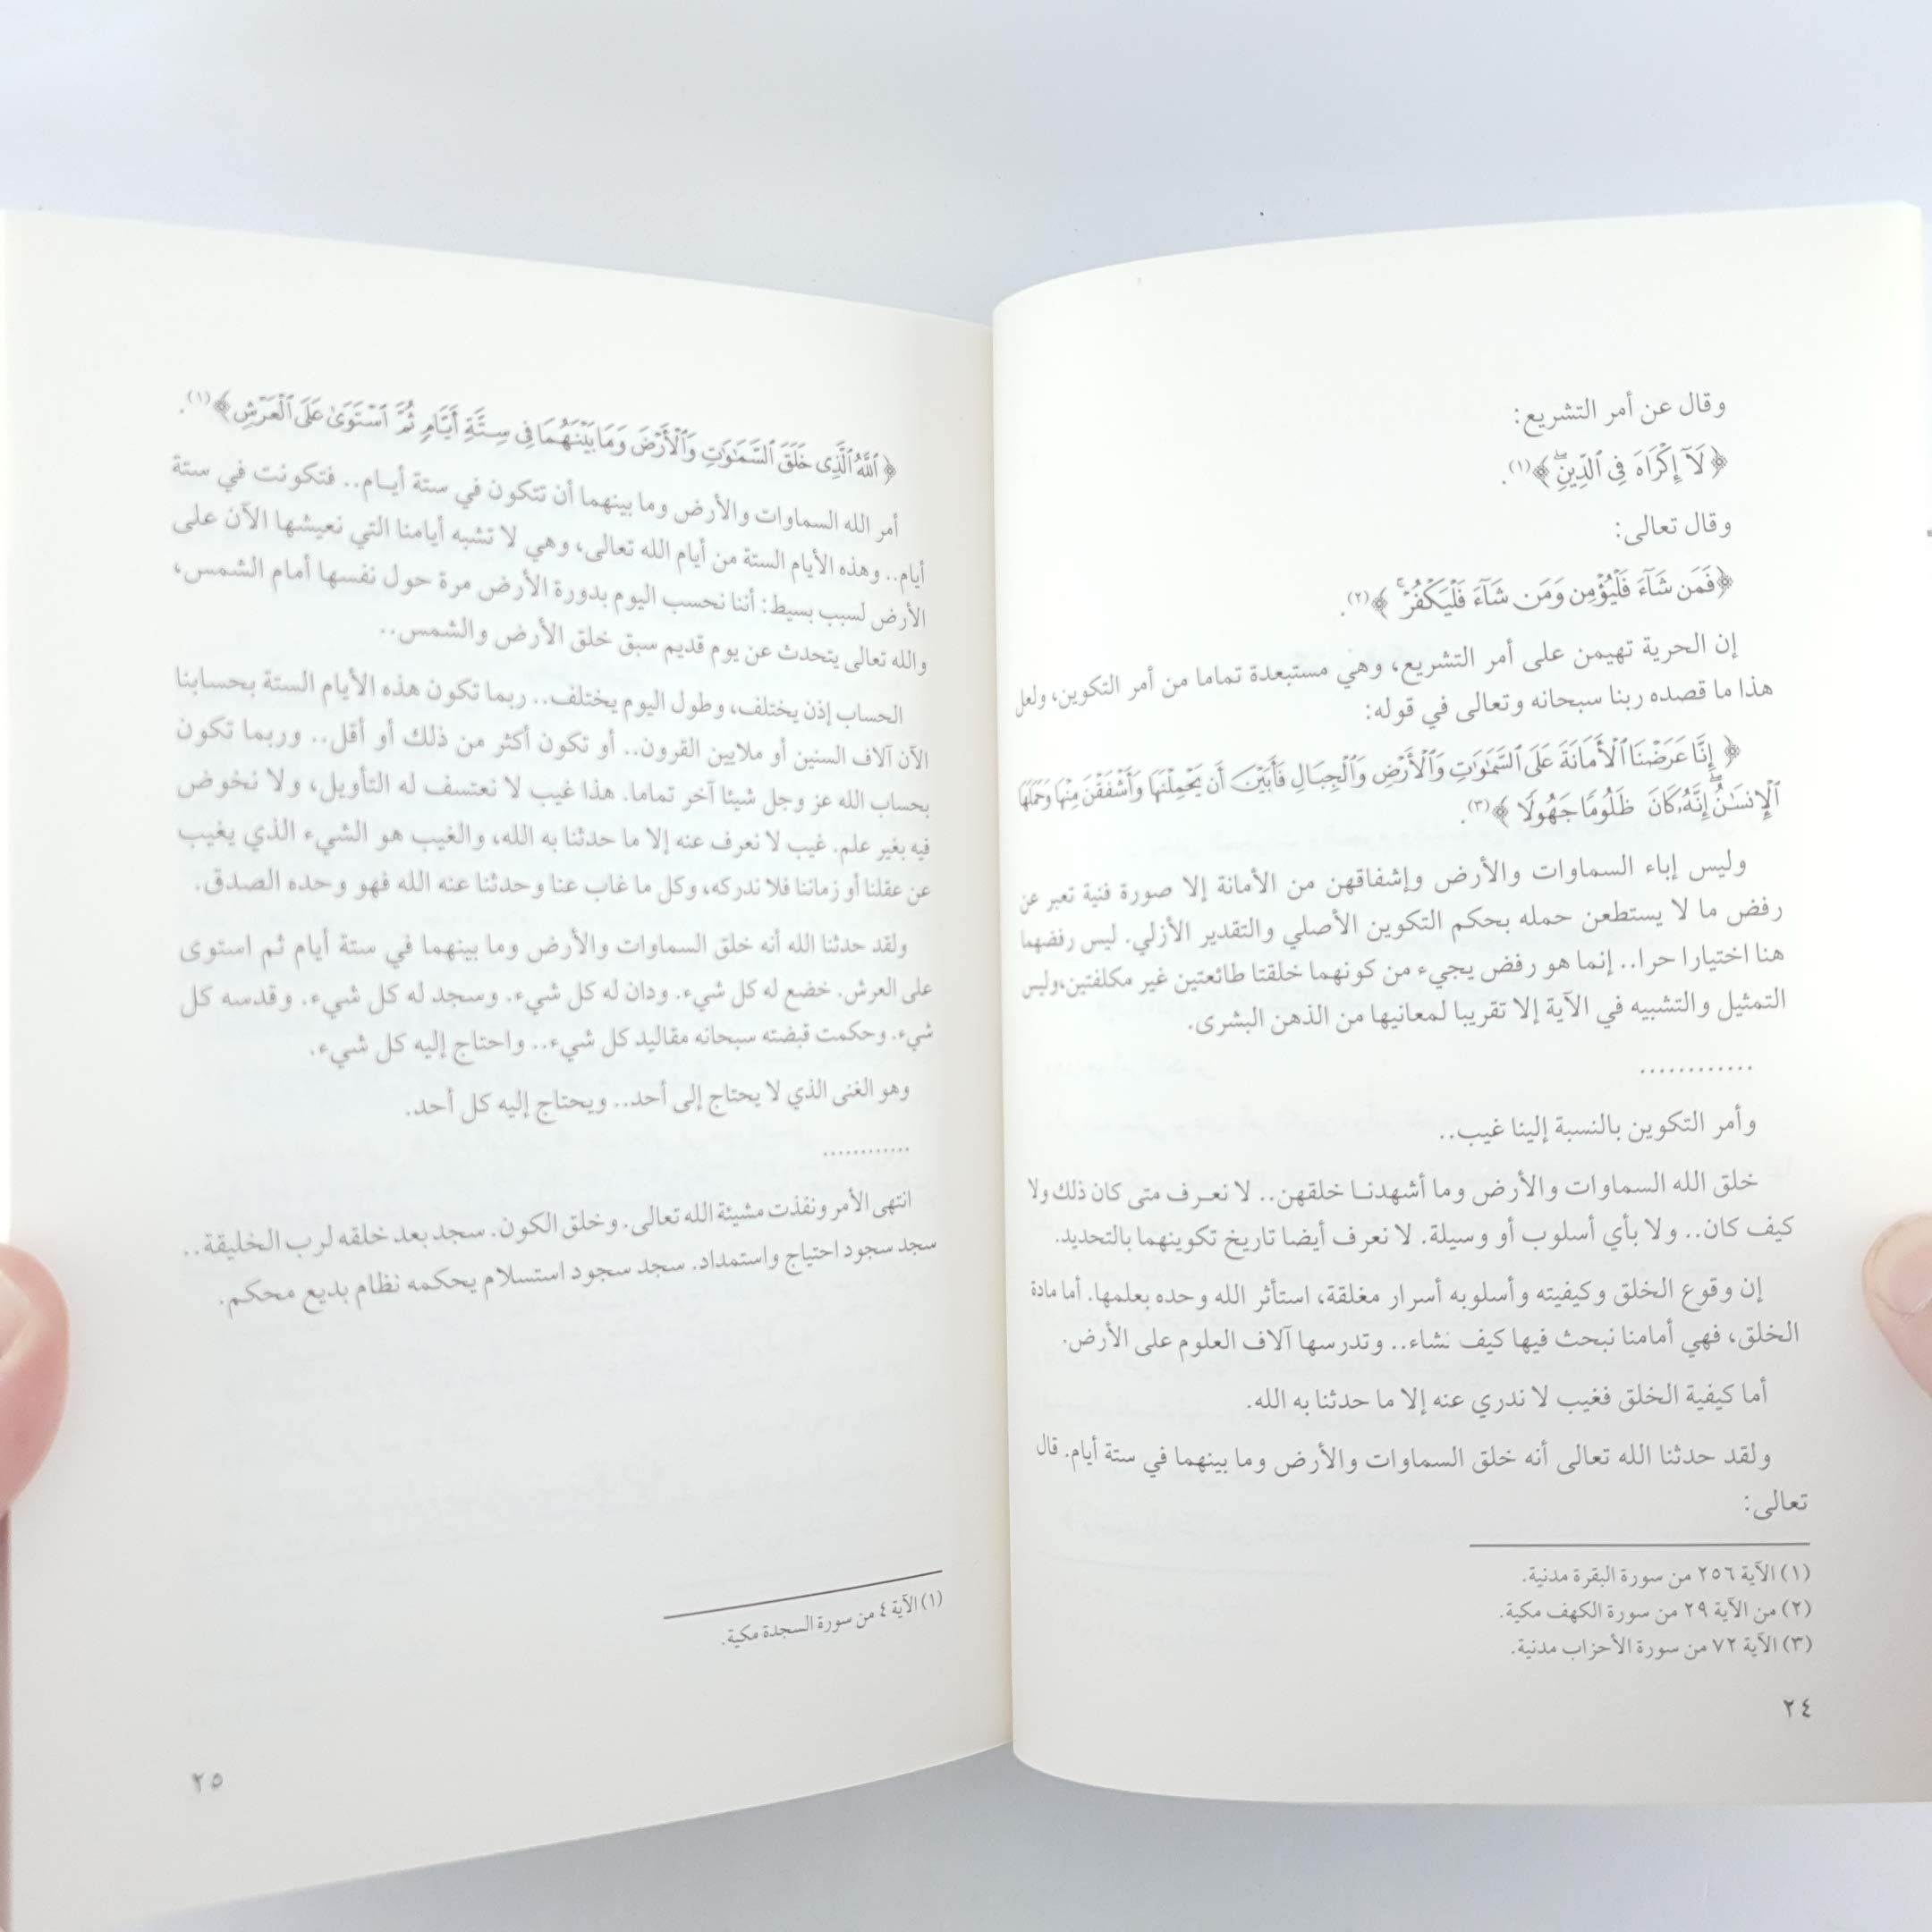 وقال عن أمر التشريع:
﴿لَآ إِكۡرَاهَ فِي ٱلدِّينِۖ﴾(١).
وقال تعالى:
﴿فَمَن شَآءَ فَلۡيُؤۡمِن وَمَن شَآءَ فَلۡيَكۡفُرۡۚ﴾(٢).
إن الحرية تهيمن على أمر التشريع، وهي مستبعدة تماما من أمر التكوين، ولعل
هذا ما قصده ربنا سبحانه وتعالى في قوله:
﴿إِنَّا عَرَضۡنَا ٱلۡأَمَانَةَ عَلَى ٱلسَّمَٰوَٰتِ وَٱلۡأَرۡضِ وَٱلۡجِبَالِ فَأَبَيۡنَ أَن يَحۡمِلۡنَهَا وَأَشۡفَقۡنَ مِنۡهَا وَحَمَلَهَا
ٱلۡإِنسَٰنُۖ إِنَّهُۥ كَانَ ظَلُومٗا جَهُولٗا﴾(٣).
وليس إباء السماوات والأرض وإشفاقهن من الأمانة إلا صورة فنية تعبر عن
رفض ما لا يستطعن حمله بحكم التكوين الأصلي والتقدير الأزلي. ليس رفضهما
هنا اختيارا حرا.. إنما هو رفض يجيء من كونهما خلقتا طائعتين غير مكلفتين،وليس
التمثيل والتشبيه في الآية إلا تقريبا لمعانيها من الذهن البشرى.
............
وأمر التكوين بالنسبة إلينا غيب..
خلق الله السماوات والأرض وما أشهدنا خلقهن.. لا نعرف متى كان ذلك ولا
كيف كان.. ولا بأي أسلوب أو وسيلة. لا نعرف أيضا تاريخ تكوينهما بالتحديد.
إن وقوع الخلق وكيفيته وأسلوبه أسرار مغلقة، استأثر الله وحده بعلمها. أما مادة
الخلق، فهي أمامنا نبحث فيها كيف نشاء.. وتدرسها آلاف العلوم على الأرض.
أما كيفية الخلق فغيب لا ندري عنه إلا ما حدثنا به الله.
ولقد حدثنا الله تعالى أنه خلق السماوات والأرض وما بينهما في ستة أيام. قال
تعالى:
(١) الآية ٢٥٦ من سورة البقرة مدنية.
(٢) من الآية ٢٩ من سورة الكهف مكية.
(٣) الآية ٧٢ من سورة الأحزاب مدنية.
٢٤
﴿ٱللَّهُ ٱلَّذِي خَلَقَ ٱلسَّمَٰوَٰتِ وَٱلۡأَرۡضَ وَمَا بَيۡنَهُمَا فِي سِتَّةِ أَيَّامٖ ثُمَّ ٱسۡتَوَىٰ عَلَى ٱلۡعَرۡشِ﴾(١).
أمر الله السماوات والأرض وما بينهما أن تتكون في ستة أيام.. فتكونت في ستة
أيام.. وهذه الأيام الستة من أيام الله تعالى، وهي لا تشبه أيامنا التي نعيشها الآن على
الأرض لسبب بسيط: أننا نحسب اليوم بدورة الأرض مرة حول نفسها أمام الشمس،
والله تعالى يتحدث عن يوم قديم سبق خلق الأرض والشمس..
الحساب إذن يختلف، وطول اليوم يختلف.. ربما تكون هذه الأيام الستة بحسابنا
الآن آلاف السنين أو ملايين القرون.. أو تكون أكثر من ذلك أو أقل.. وربما تكون
بحساب الله عز وجل شيئا آخر تماما. هذا غيب لا نعتسف له التأويل، ولا نخوض
فيه بغير علم. غيب لا نعرف عنه إلا ما حدثنا به الله، والغيب هو الشيء الذي يغيب
عن عقلنا أو زماننا فلا ندركه، وكل ما غاب عنا وحدثنا عنه الله فهو وحده الصدق.
ولقد حدثنا الله أنه خلق السماوات والأرض وما بينهما في ستة أيام ثم استوى
على العرش. خضع له كل شيء. ودان له كل شيء. وسجد له كل شيء. وقدسه كل
شيء. وحكمت قبضته سبحانه مقاليد كل شيء.. واحتاج إليه كل شيء.
وهو الغنى الذي لا يحتاج إلى أحد.. ويحتاج إليه كل أحد.
............
انتهى الأمر ونفذت مشيئة الله تعالى. وخلق الكون. سجد بعد خلقه لرب الخليقة..
سجد سجود احتياج واستمداد. سجد سجود استسلام يحكمه نظام بديع محكم.
(١) الآية ٤ من سورة السجدة مكية.
٢٥